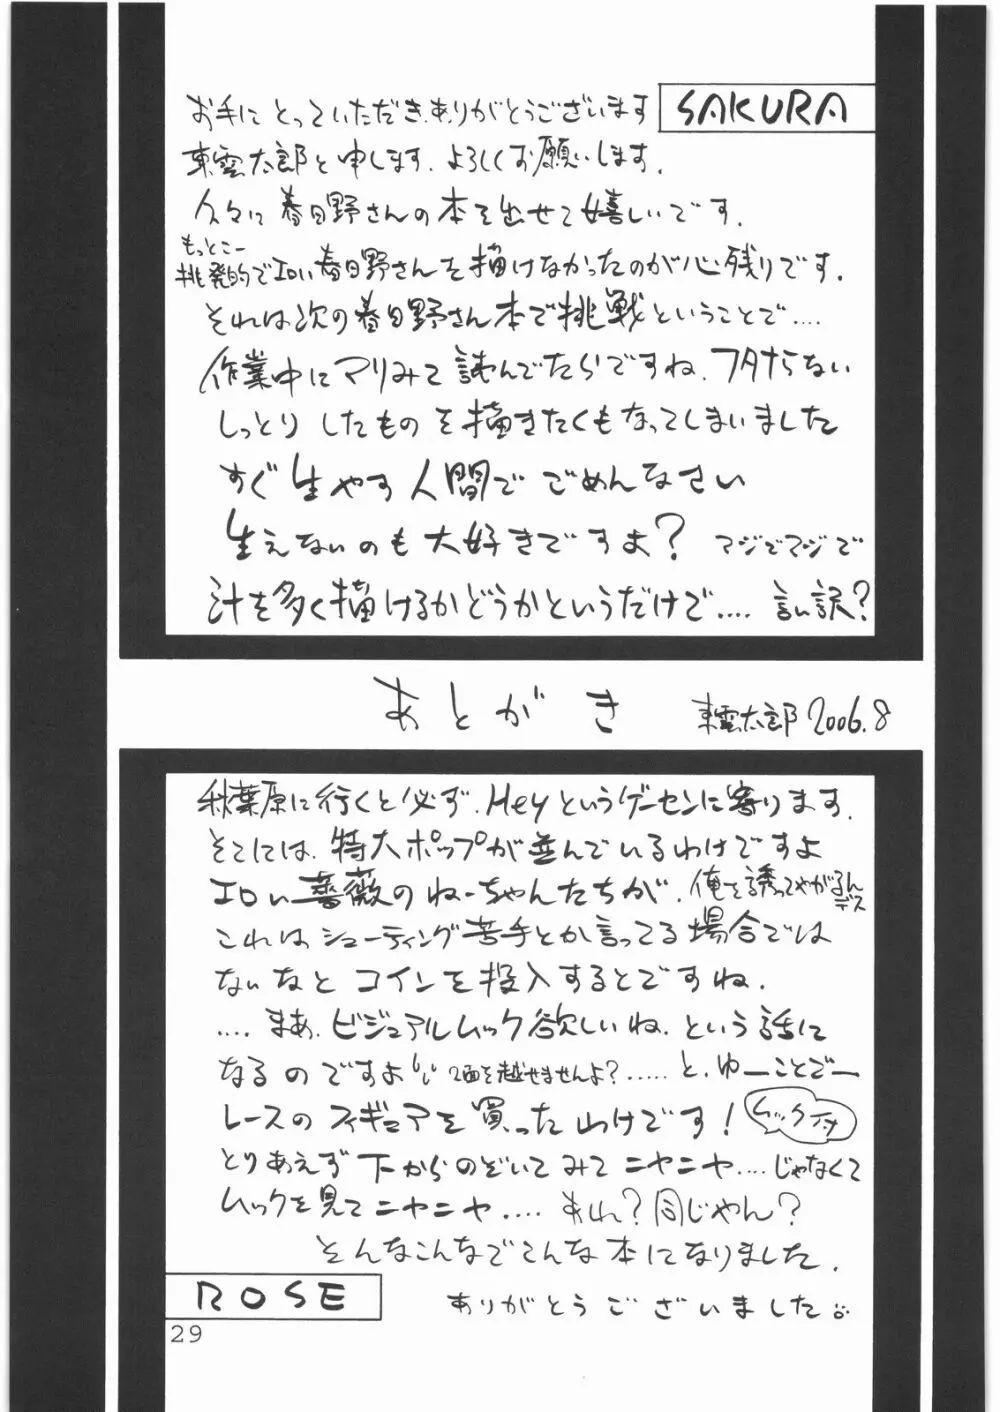 SAKURA
お手にとっていただきありがとうございます
東雲太郎と申します、よろしくお願いします。
久々に春日野さんの本を出せて嬉しいです。
もっとこー
挑発的でエロい春日野さんを描けなかったのが心残りです。
それは次の春日野さん本で挑戦ということで....
作業中にマリみて読んでたらですね、フタナらない
しっとりしたものを描きたくもなってしまいました
すぐ生やす人間でごめんなさい
生えないのも大好きですよ? マジでマジで
汁を多く描けるかどうかというだけで.... 言い訳?
あとがき 東雲太郎 2006.8
秋葉原に行くと必ず、Heyというゲーセンに寄ります。
そこには、特大ポップが並んでいるわけですよ
エロい薔薇のねーちゃんたちが、俺を誘ってやがるんデス
これはシューティング苦手とか言ってる場合では
ないなとコインを投入するとですね、
....まあ、ビジュアルムック欲しいね、という話に
なるのですよ 2面を越せませんよ?.....と、ゆーことでー
レースのフィギュアを買ったわけです! ムック付
とりあえず下からのぞいてみてニヤニヤ....じゃなくて
ムックを見てニヤニヤ.... あれ?同じやん?
そんなこんなでこんな本になりました。
ROSE
ありがとうございました。
29